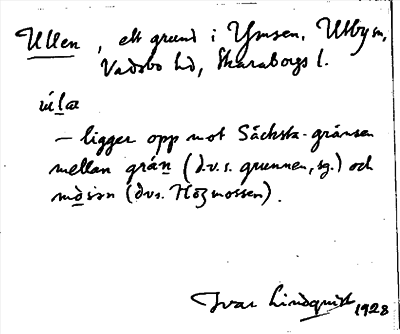 Ullen, ett grund i Ymsen, Utby sn,
Vadsbo hd, Skaraborgs l.
– ligger opp mot Säckstа-gränsen
mellan grån (d.v.s. grunnen, sg.) och
(dvs. Högmossen).
Ivar Lindquist 1928